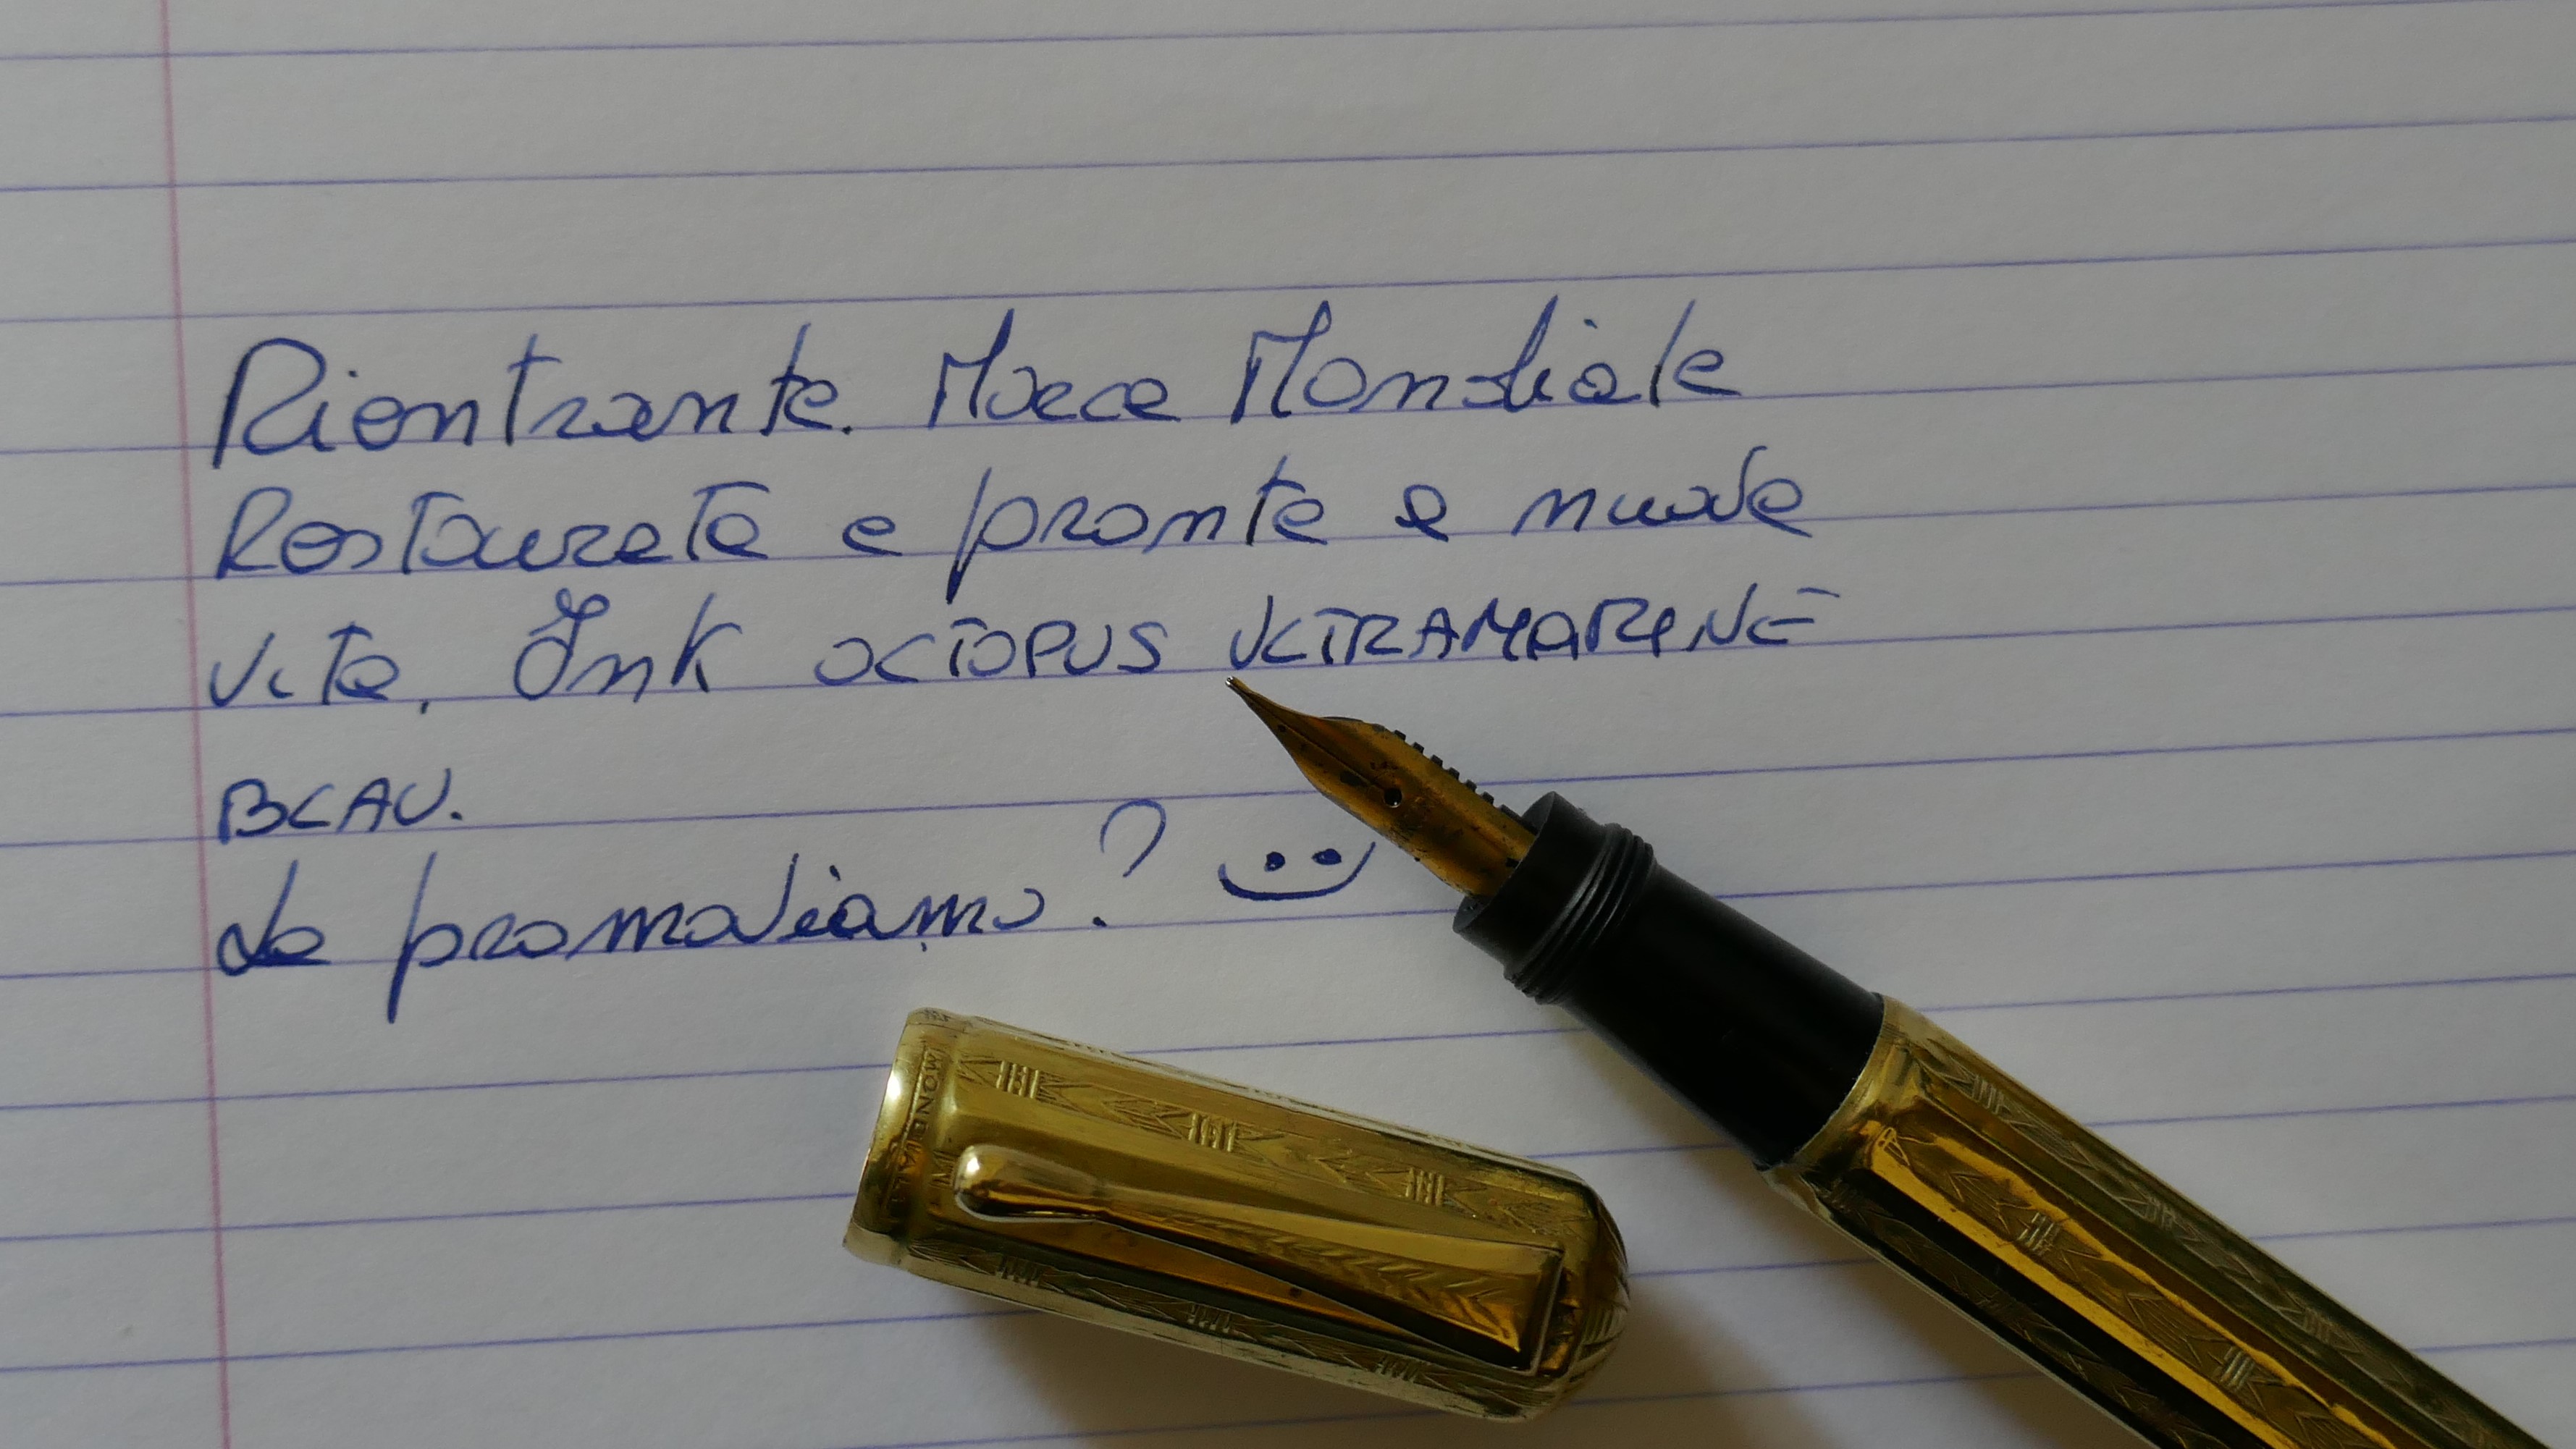 Rientrante. Marca Mondiale
Restaurata e pronta a nuova
vita. Ink OCTOPUS ULTRAMARINE
BLAU.
La promoviamo?
MONDIAL